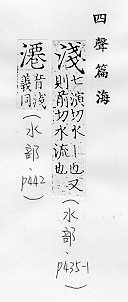 四聲篇海
淺 七演切水丨也又
則前切水流也
(水部．p435-1)
音淺
義同
(水部．p442)